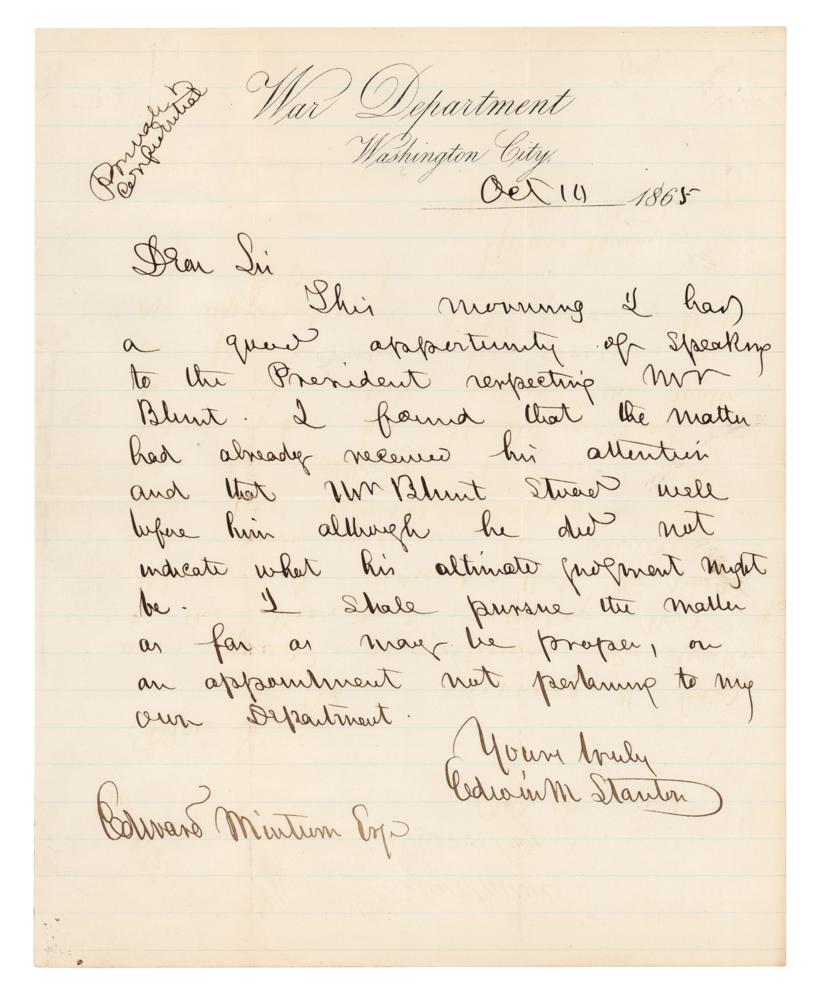 Private &
Confidential
War Department
Washington City,
Oct 10 1865
Dear Sir
This morning I had
a good opportunity of speaking
to the President respecting Mr
Blunt. I found that the matter
had already received his attention
and that Mr Blunt stood well
before him although he did not
indicate what his ultimate judgment might
be. I shall pursue the matter
as far as may be proper, on
an appointment not pertaining to my
own Department.
Yours truly
Edwin M Stanton
Edward Minturn Esq